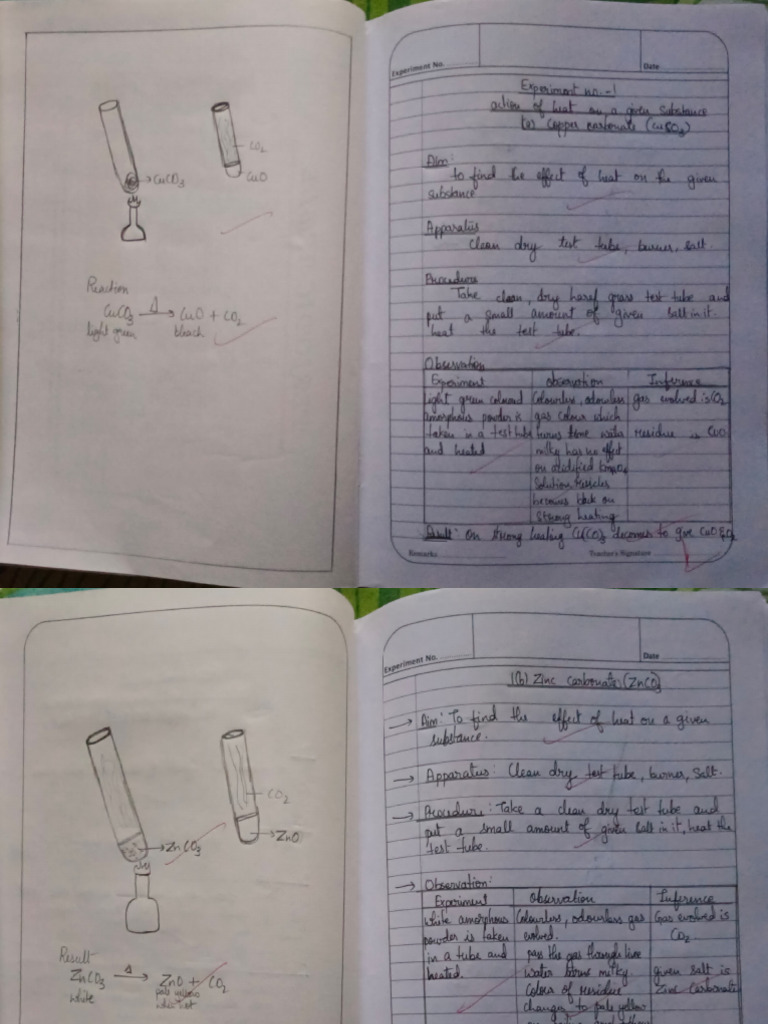 CO2
CuCO3
CuO
Reaction
CuCO3 Δ→ CuO + CO2
light green black
Experiment No.
Date
Experiment no.-1
action of heat on a given substance
(a) Copper carbonate (CuCO3)
Aim:
To find the effect of heat on the given
substance
Apparatus
Clean dry test tube, burner, salt.
Procedure
Take clean, dry hard glass test tube and
put a small amount of given salt in it.
heat the test tube.
Observation
Experiment observation Inference
light green coloured Colourless, odourless gas evolved is CO2
amorphous powder is gas colour which
taken in a test tube turns lime water residue is CuO
and heated milky has no effect
on acidified
Solution
becomes black on
Strong heating
Result: On strong heating CuCO3 to give CuO & CO2
Remarks Teacher's Signature
CO2
ZnCO3
ZnO
Result
ZnCO3 Δ→ ZnO + CO2
white pale yellow
when hot
Experiment No.
Date
1(b) Zinc carbonate (ZnCO3)
→ Aim: To find the effect of heat on a given
substance.
→ Apparatus: Clean dry test tube, burner, Salt.
→ Procedure: Take a clean dry test tube and
put a small amount of given salt in it, heat the
test tube.
→ Observation:
Experiment Observation Inference
white amorphous Colourless, odourless gas Gas evolved is
powder is taken evolved. CO2
in a tube and pass the gas through lime
heated. water turns milky. given salt is
Colour of residue Zinc Carbonate
changes to pale yellow